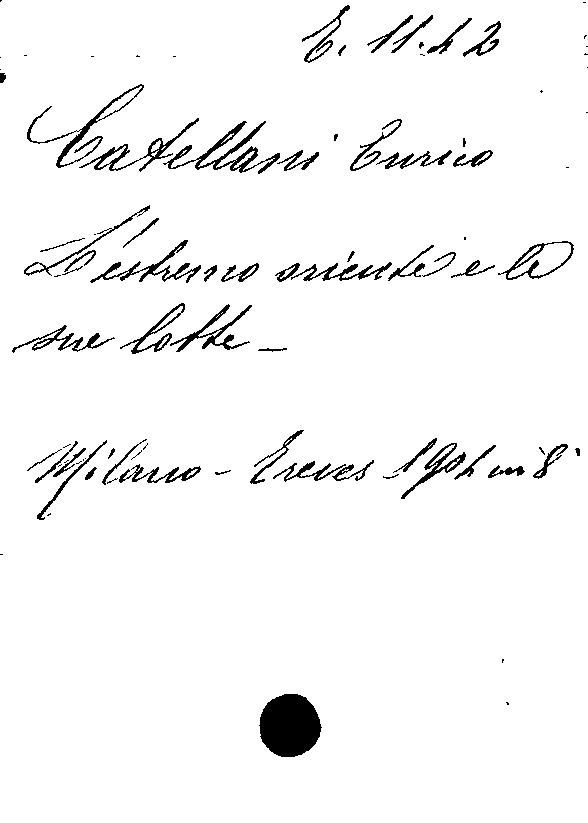 E. 11. 42
Catellani Enrico
L'estremo oriente e le
sue lotte _
Milano - Treves 1904 in 8°